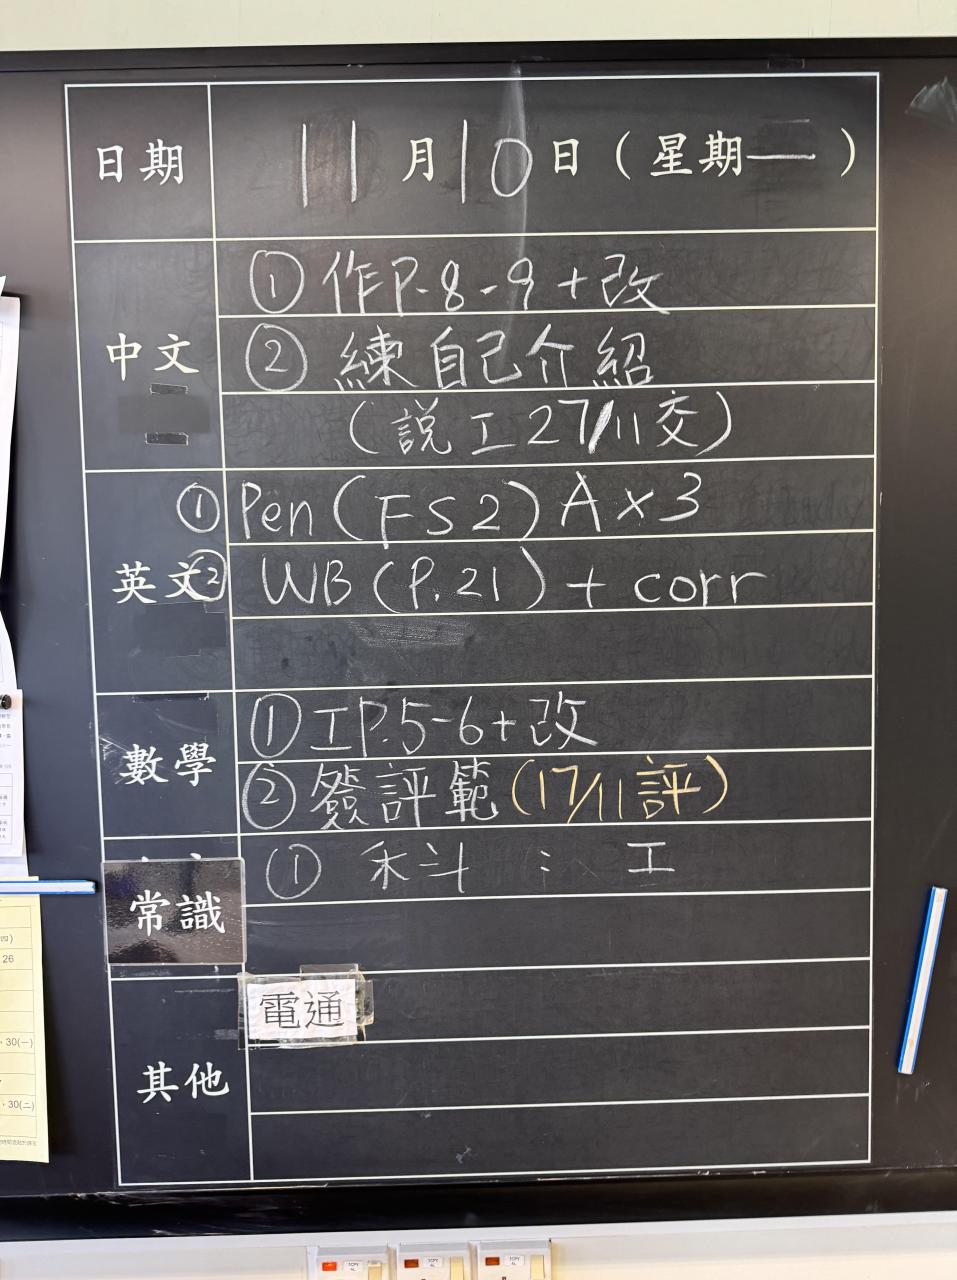 日期 11月10日(星期一)
中文
①作P.8-9+改
②練自己介紹
(説工27/11交)
英文
①Pen(FS2)A×3
②WB(P.21)+corr
數學
①工P.5-6+改
②簽評範(17/11評)
常識
①科:工
其他
電通
四)
26
30(一)
30(二)